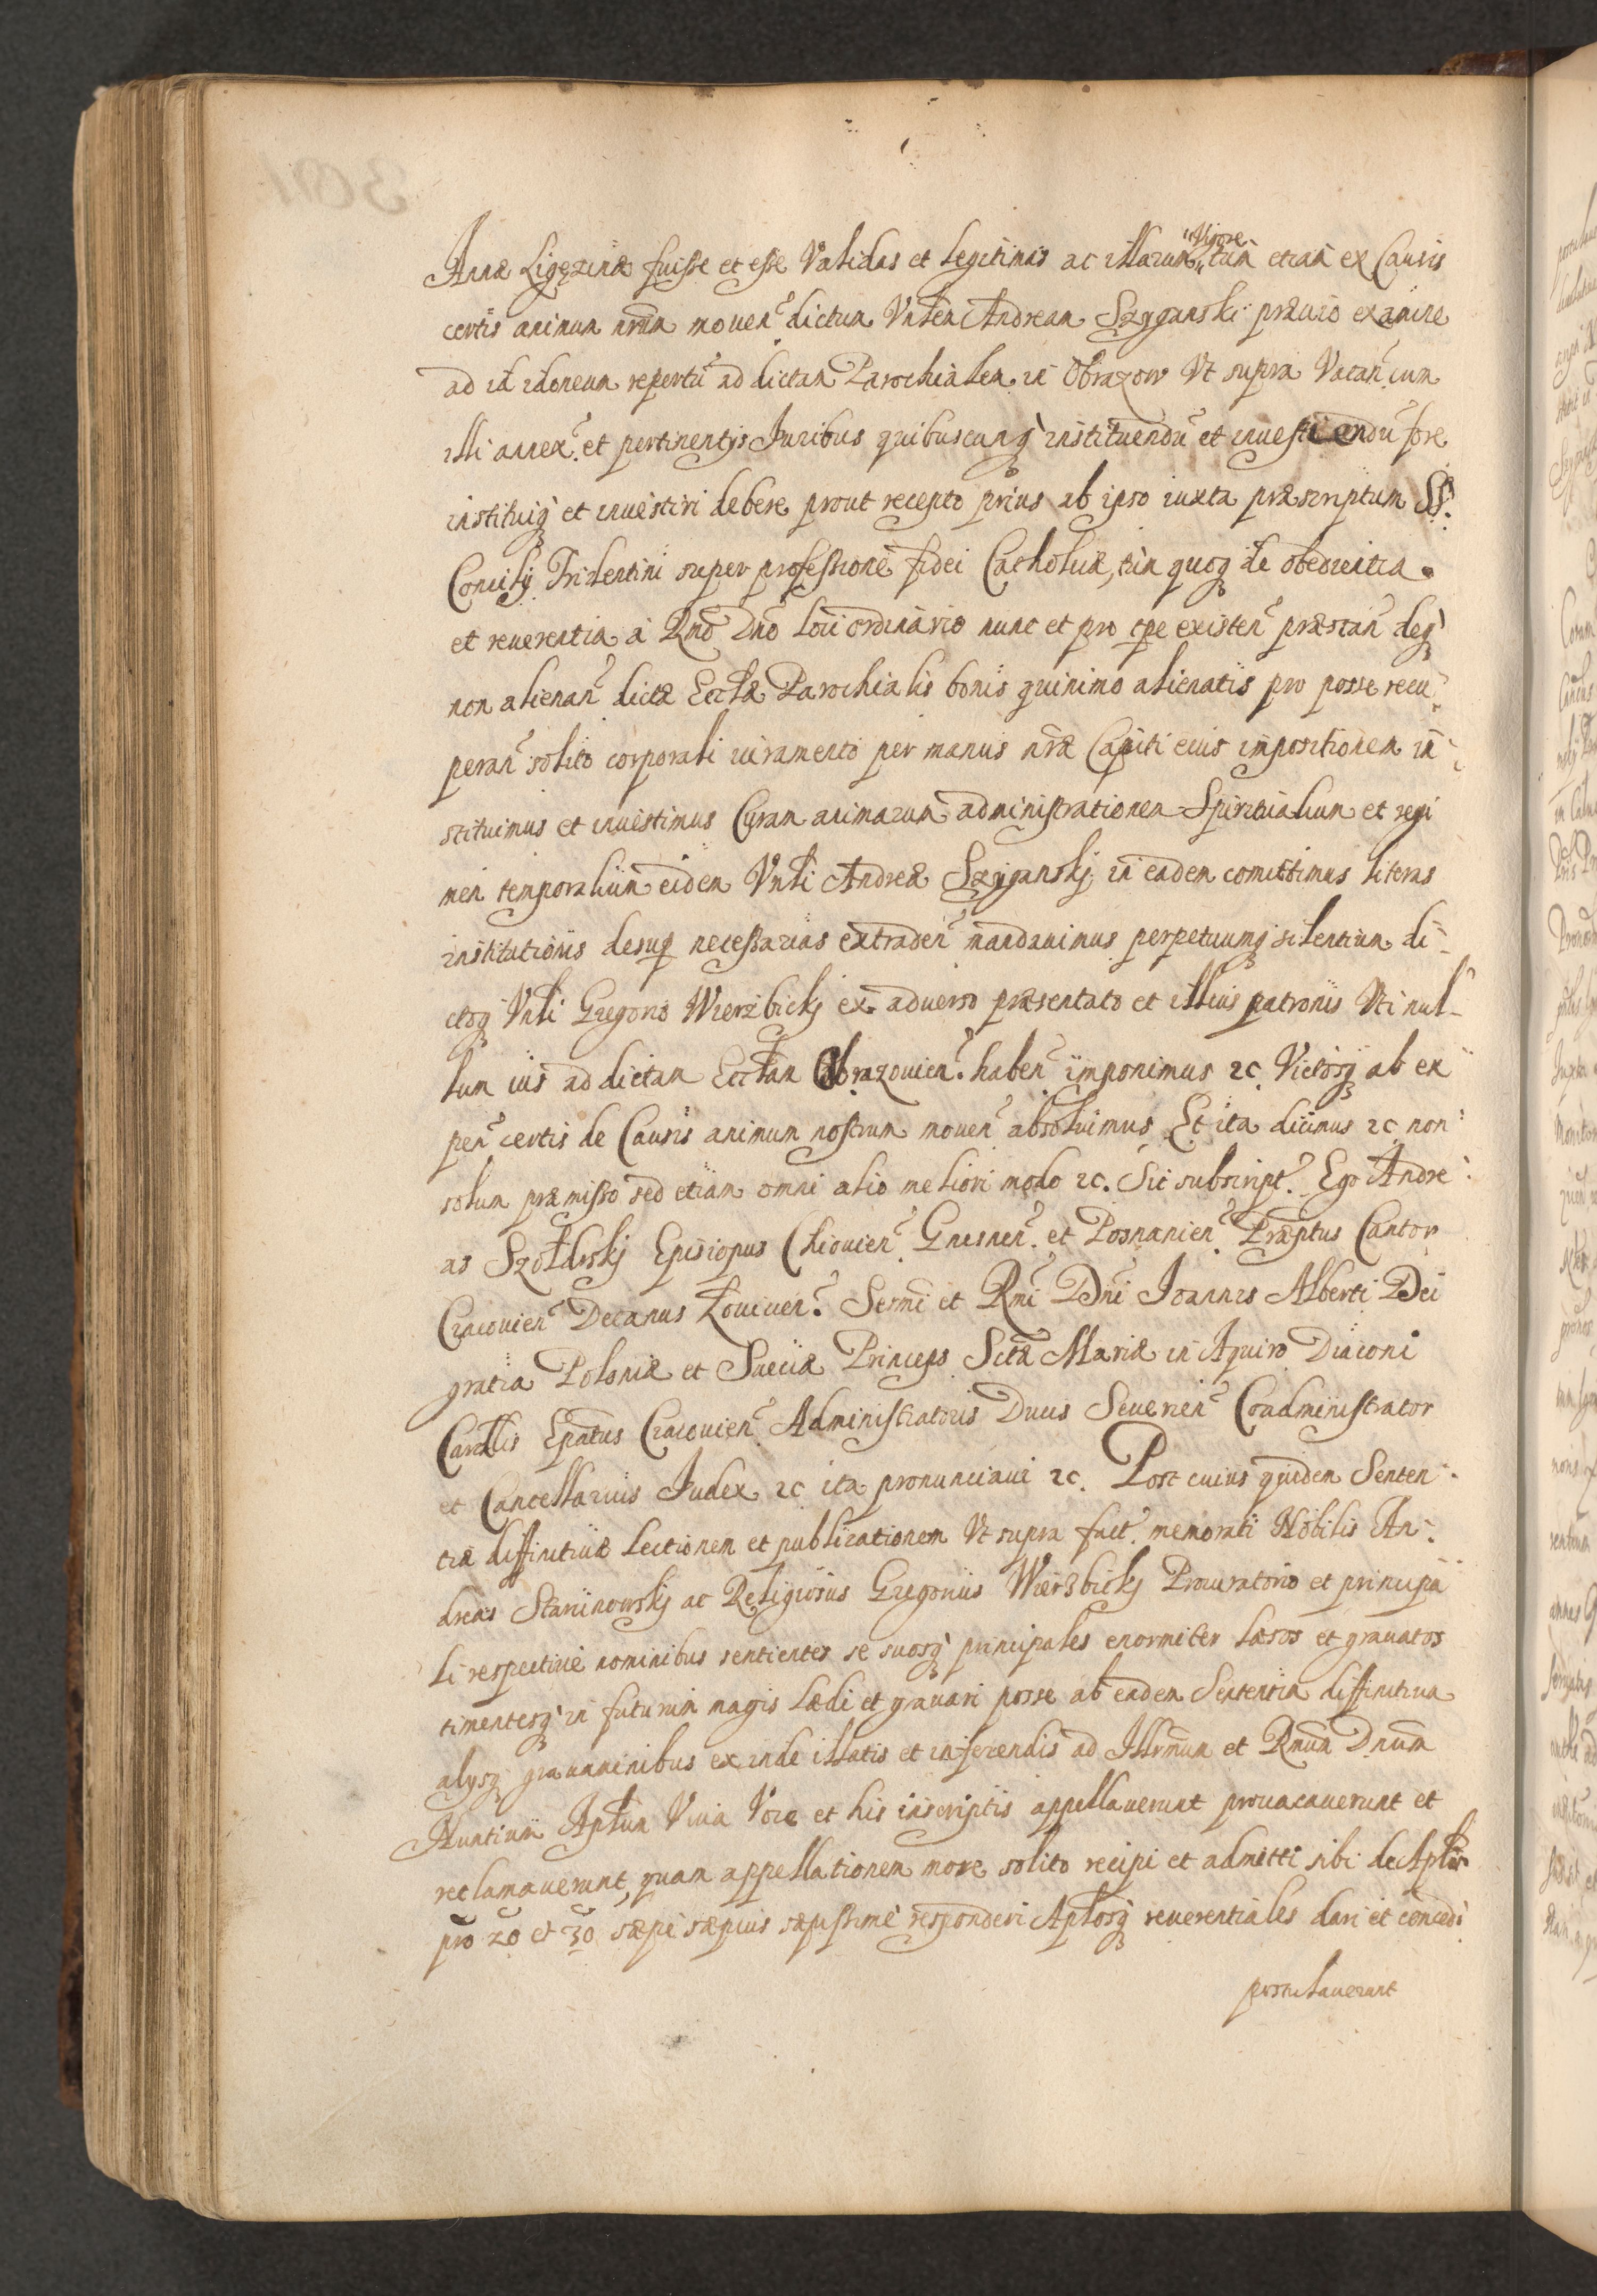 Annæ Ligęzinæ fuisse et esse Validas et legitimas ac illarum Vigore tum etiam ex Causis
certis animum nrũm mouen̄ dictum Vnlem Andream Szyganski præuio examine
ad id idoneum repertū ad dictam Parochialem in Obrazow Vt supra Vacan̄ cum
illi annex̄ et pertinentijs Juribus quibuscunq; instituendū et inuestiendū fore
instituiq; et inuestiri debere prout recepto prius ab ipso iuxta præscriptum SS.
Concilij Tridentini super professionē fidei Catholicæ, tum quoq; de obedientia
et reuerentia a Rñdo Dño loci ordinario nunc et pro tpe existen̄ præstan̄ deq;
non alienan̄ dictæ Ecclæ Parochialis bonis quinimo alienatis pro posse recu
peran̄ solito corporali iuramento per manus nræ Capiti eius impositionem in
stituimus et inuestimus Curam animarum administrationem Spiritualium et regi
men temporalium eidem Vnli Andreæ Szyganskj in eadem comittimus literas
institutionis desup necessarias extraden̄ mandauimus perpetuumq; silentium di-
ctoq; Vnli Gregorio Wierzbickj ex aduerso præsentato et illius patronis Vti nul-
lum ius ad dictam Ecclam Obrazouien̄ haben̄ imponimus &c. Victosq; ab ex
pen̄ certis de Causis animum nostrum mouen̄ absoluimus Et ita dicimus &c non
solum præmisso sed etiam omni alio meliori modo &c. Sic subscript. Ego Andre
as Szołdrskj Episcopus Chiouien̄ Gnesnen̄ et Posnanien̄ Præptus Cantor
Cracouien̄ Decanus Łouicien̄ Sermi et Rmi Dni Joannis Alberti Dei
gratia Poloniæ et Sueciæ Princeps Sctæ Mariæ in Aquiro Diaconi
Cardlis Epatus Cracouien̄ Administratoris Ducis Seuerien̄ Coadministrator
et Cancellarius Judex &c ita pronunciaui &c. Post cuius quidem Senten
tiæ diffinitiuæ lectionem et publicationem Vt supra fact. memorati Nobilis An
dreas Staninowskj ac Religiosus Gregorius Wierzbickj Procuratorio et principa
li respectiuè nominibus sentientes se suosq; principales enormiter læsos et grauatos
timentesq; in futurum magis lædi et grauari posse ab eadem Sententia diffinitiua
alijsq; grauaminibus exinde illatis et inferendis ad Illrmum et Rmum Dnum
Nuntium Aplum Viua Voce et his inscriptis appellauerunt prouocauerunt et
reclamauerunt, quam appellationem more solito recipi et admitti sibi de Aplis
pro 20 et 30 sæpe sæpius sæpissimè responderi Aplosq; reuerentiales dari et concedi
postulauerunt